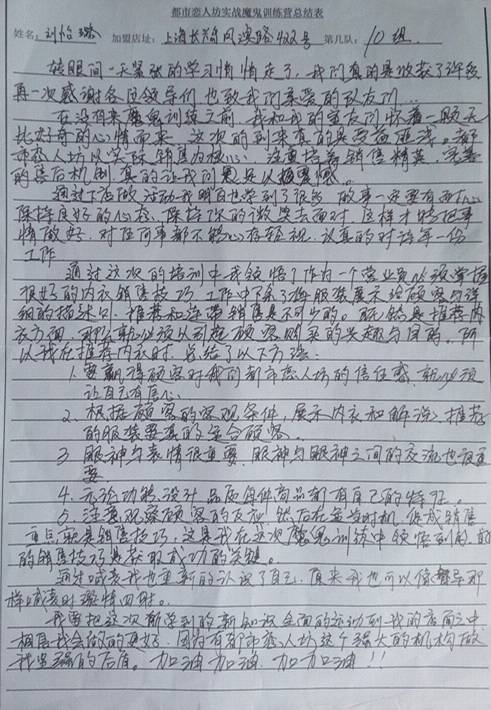 都市恋人坊实战魔鬼训练营总结表
姓名：刘怡 加盟店址：上海长 路 号 第几队：10组
转眼间一天紧张的学习悄悄走了，我们真的是收获了许多
再一次感谢各位领导们也致我们亲爱的队友们...
在没有来魔鬼训练之前，我和我的室友们怀着一颗无
比好奇的心情而来，这次的到来真的是受益匪浅。都
市恋人坊以实际销售为核心，注重培养销售精英，完善
的售后机制真的让我们
通过下店做活动我明白也学到了很多，做事一定要有信心
保持良好的心态，保持你的微笑去面对，这样才能把事
情做好，对任何事都不能心存轻视，认真的对待每一份
工作
通过这次的培训中我领悟了作为一个营业员必须掌握
很好的内衣销售技巧，工作中除了将服装展示给顾客与详
细的描述外，推荐和连带销售是不可少的。既然是推荐内
衣方面，那么就必须从引起顾客购买的兴趣与目的。所
以我在推荐内衣时，总结了以下方法：
1. 要赢得顾客对我们都市恋人坊的信任感，就必须
让自己有信心
2. 根据顾客的客观条件，展示内衣和解说，推荐
的服装要真的适合顾客。
3. 眼神与表情很重要，眼神与眼神之间的交流也很重
要
4. 无论功能 设计 品质 每件商品都有自己的特征。
5. 注意观察顾客的反应，然后在适当时机，促成销售
重点 销售技巧，这是我在这次魔鬼训练中领悟到的，
的销售技巧是获取成功的关键。
通过喊麦我也重新的认识了自己，原来我也可以像 那
样喊麦时激情四射。
我要把这次所学到的新知识全面的运动到我的店面之中
相信我会做的更好，因为有都市恋人坊这个强大的机构做
我坚强的后盾。加油 加油 加加油！！